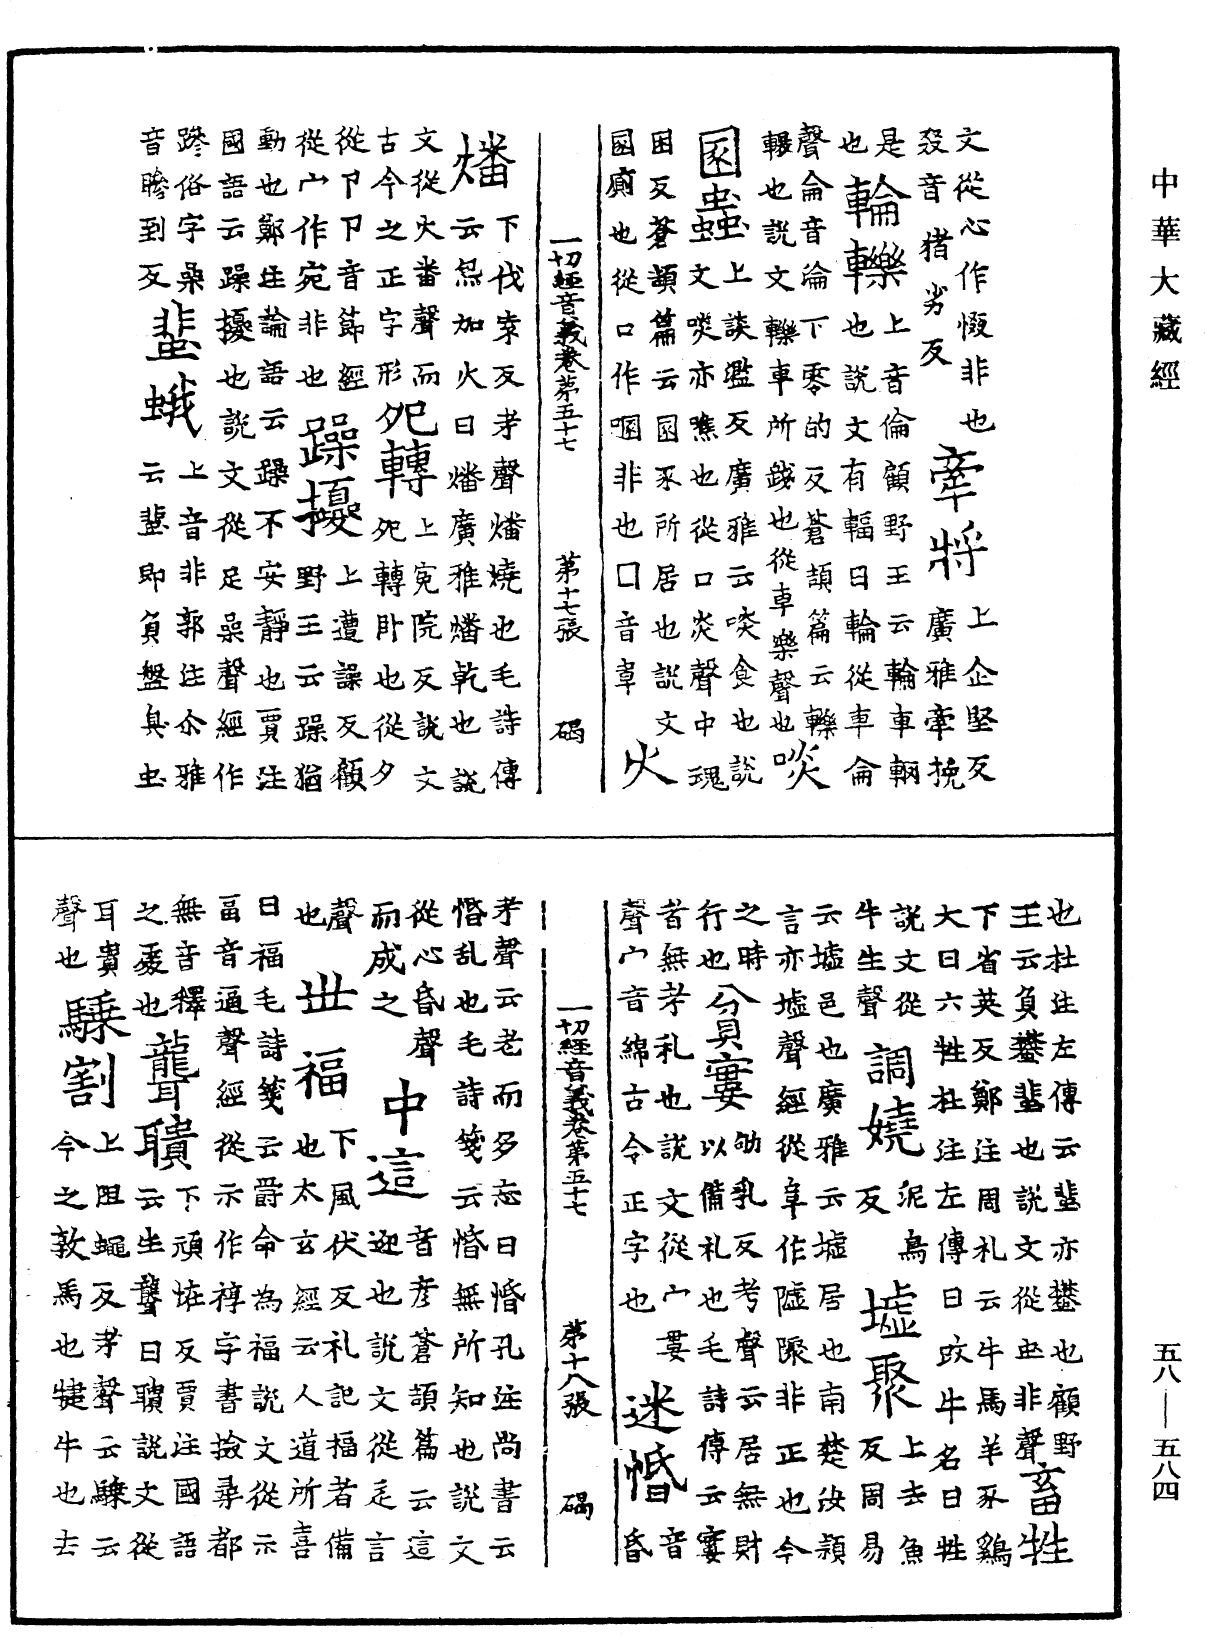 中華大藏經
文從心作惙非也
殁音 猪劣反 牽將 上企堅反
廣雅牽挽
是輪轢 上音倫顧野王云輪車輞
也 也說文有輻曰輪從車侖
聲侖音淪下零的反蒼頡篇云轢
輾也說文轢車所踐也從車樂聲也 啖
圂蟲 上談濫反廣雅云啖食也說
文啖亦噍也從口炎聲中魂
困反蒼頡篇云圂豕所居也說文
圂廁也從口作圂非也囗音韋 火
一切經音義卷第五十七 第十七張 碣
燔 下伐袁反考聲燔燒也毛詩傳
云炰加火曰燔廣雅燔乾也說
文從火番聲而
古今之正字形 夗轉 上宛院反說文
夗轉卧也從夕
從卪卪音節經
從宀作宛非也 躁擾 上遭譟反顧
野王云躁猶
動也鄭注論語云躁不安靜也賈注
國語云躁擾也說文從足喿聲經作
躁俗字喿 蜚蛾 上音非郭注尒雅
音瞻到反 云蜚即負盤臭虫
也杜注左傳云蜚亦蠜也顧野
王云負蠜蜚也說文從虫非聲 畜牲
下省英反鄭注周礼云牛馬羊豕鷄
犬曰六牲杜注左傳曰改牛名曰牲
說文從
牛生聲 調嬈 泥鳥
反 墟聚 上去魚
反周易
云墟邑也廣雅云墟居也南楚汝潁
言亦墟聲經從阜作隵隊非正也今
之時
行也 貧窶 劬乳反考聲云居無財
以備礼也毛詩傳云窶
者無茅礼也說文從宀婁音
聲宀音綿古今正字也 迷惛 昏
一切經音義卷第五十七 第十八張 碣
考聲云老而多忘曰惛孔注尚書云
惛乱也毛詩箋云惛無所知也說文
從心昏聲
而成之 中這 音彦蒼頡篇云這
迎也說文從辵言
聲
也 丗福 下風伏反礼記福者備
也太玄經云人道所喜
曰福毛詩箋云爵命為福說文從示
畐音逼聲經從示作䄟字書撿尋都
無音釋
之處也 聾聵 下頑恠反賈注國語
云生聾曰聵說文從
耳貴
聲也 騬割 上阻蠅反考聲云騬云
今之敦馬也犍牛也去
五八—五八四